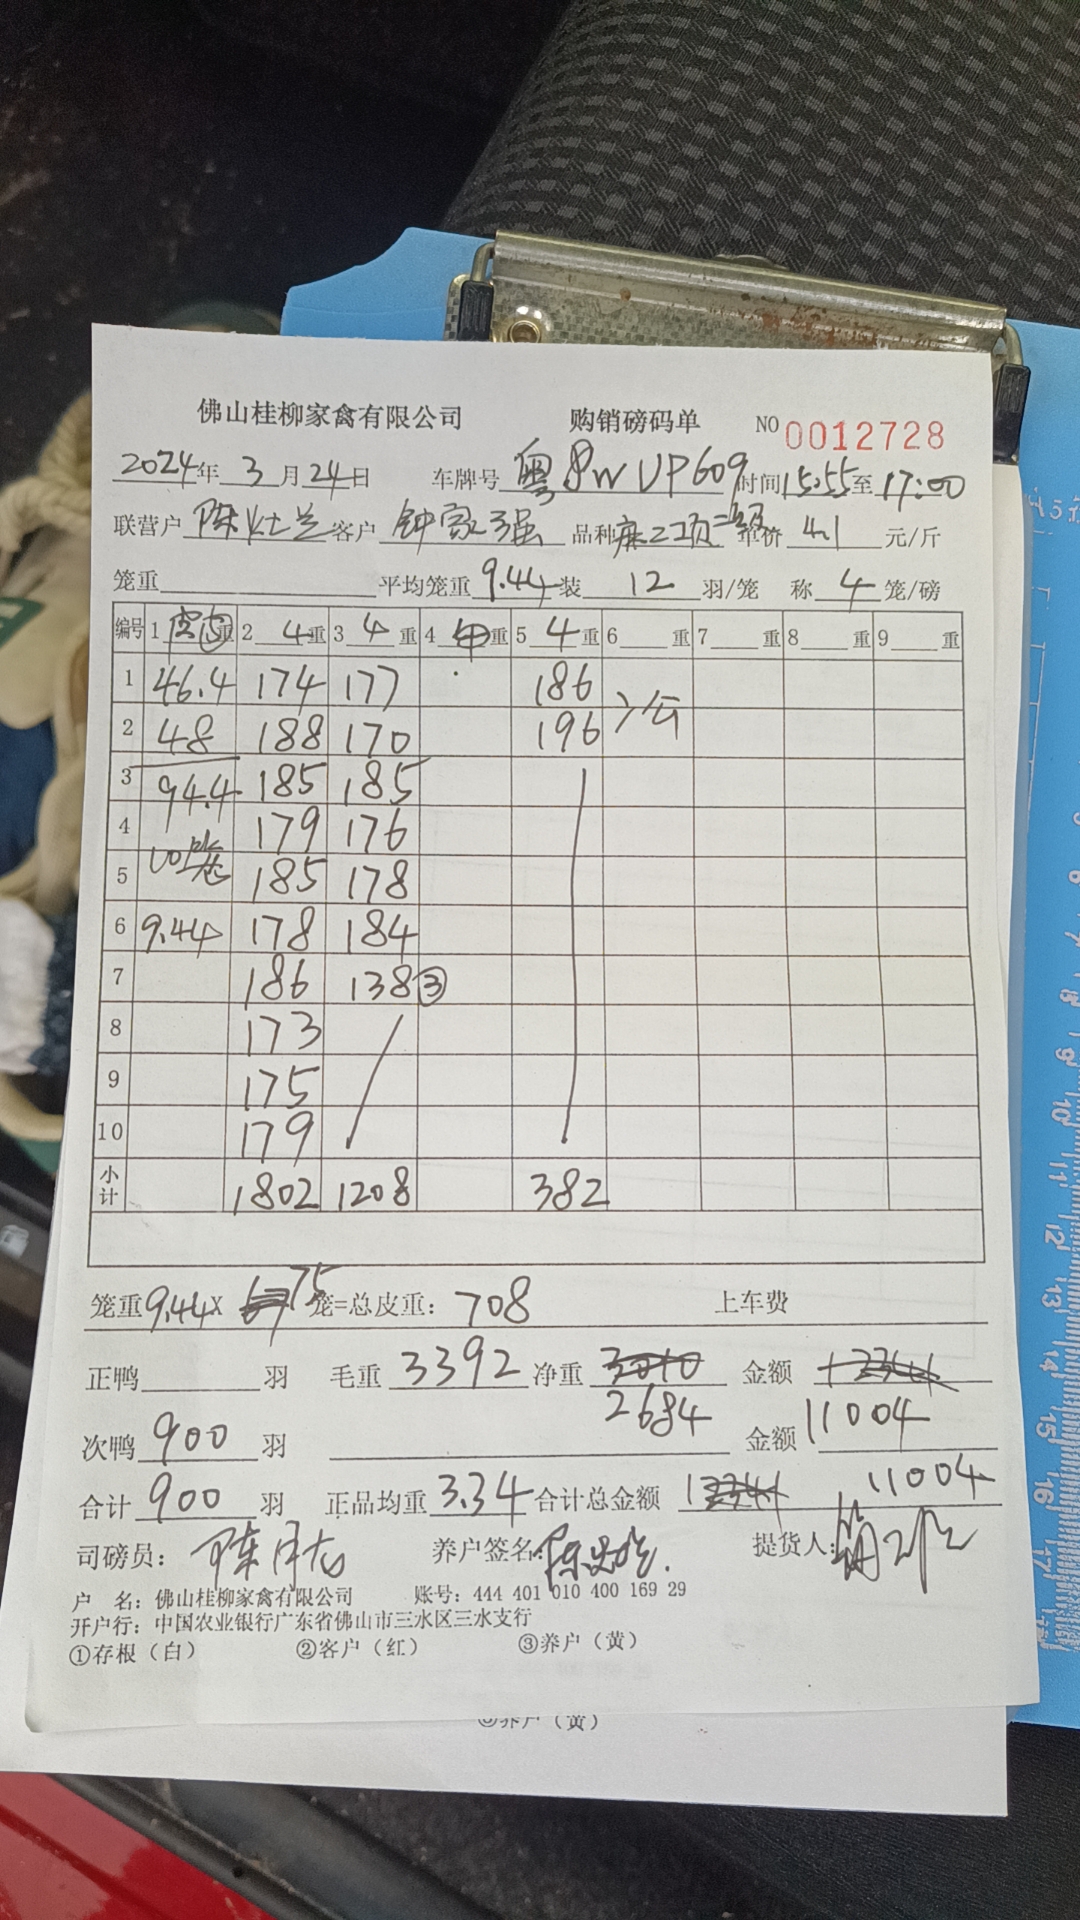 佛山桂柳家禽有限公司 购销磅码单 NO 0012728
2024年 3月24日 车牌号 粤 UP609 时间15:55至17:00
联营户 陈灶兰 客户 钟家强 品种 麻二项二级 单价 4.1 元/斤
笼重 平均笼重 9.44 装 12 羽/笼 称 4 笼/磅
编号 1 重 2 4重 3 4重 4 重 5 4重 6 重 7 重 8 重 9 重
1 46.4 174 177 186
2 48 188 170 196
3 94.4 185 185
4 179 176
5 185 178
6 9.44 178 184
7 186 138③
8 173
9 175
10 179
小计 1802 1208 382
笼重9.44X 75笼=总皮重：708 上车费
正鸭 羽 毛重 3392 净重 3010 金额
2684
次鸭 900 羽 金额 11004
合计 900 羽 正品均重 3.34 合计总金额 11004
司磅员： 养户签名： 提货人：
户 名：佛山桂柳家禽有限公司 账号：444 401 010 400 169 29
开户行：中国农业银行广东省佛山市三水区三水支行
①存根（白） ②客户（红） ③养户（黄）
③养户（黄）